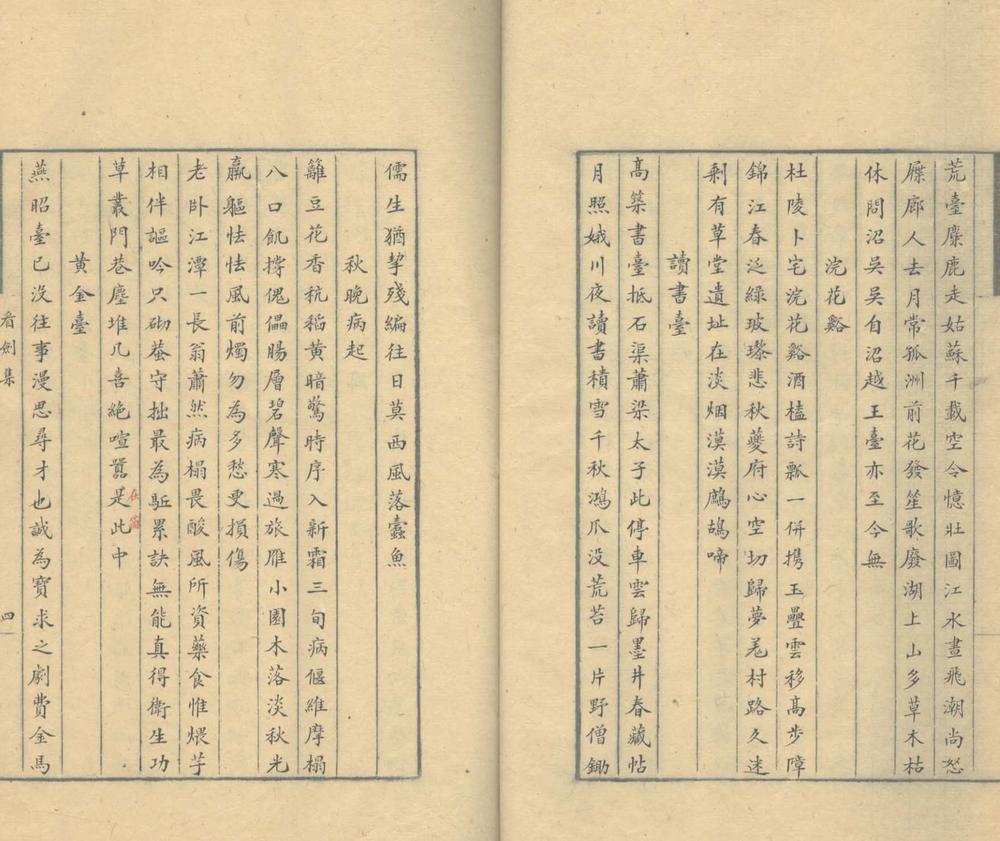 荒臺麋鹿走姑蘇千載空令憶壯圖江水晝飛潮尚怒
屧廊人去月常孤洲前花發笙歌廢湖上山多草木枯
休問沼吳吳自沼越王臺亦至今無
浣花谿
杜陵卜宅浣花谿酒榼詩瓢一併携玉壘雲移高步障
錦江春泛綠玻瓈悲秋夔府心空切歸夢羌村路久迷
剩有草堂遺址在淡烟漠漠鷓鴣啼
讀書臺
高築書臺抵石渠蕭梁太子此停車雲歸墨井春藏帖
月照娥川夜讀書積雪千秋鴻爪没荒苔一片野僧鋤
儒生猶挈殘編往日莫西風落蠹魚
秋晚病起
籬豆花香秔稻黃暗驚時序入新霜三旬病偃維摩榻
八口飢撐傀儡腸層碧聲寒過旅雁小園木落淡秋光
羸軀怯怯風前燭勿為多愁更損傷
老卧江潭一長翁蕭然病榻畏酸風所資藥食惟煨芋
相伴謳吟只砌蛬守拙最為駈累訣無能真得衛生功
草叢門巷塵堆几喜絶喧囂是此中
在窗
黄金臺
燕昭臺已没往事漫思尋才也誠為寳求之劇費金馬
看劍集
四